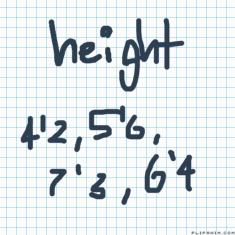 height
4'2, 5'6,
7'3, 6'4
FLIPANIM.COM